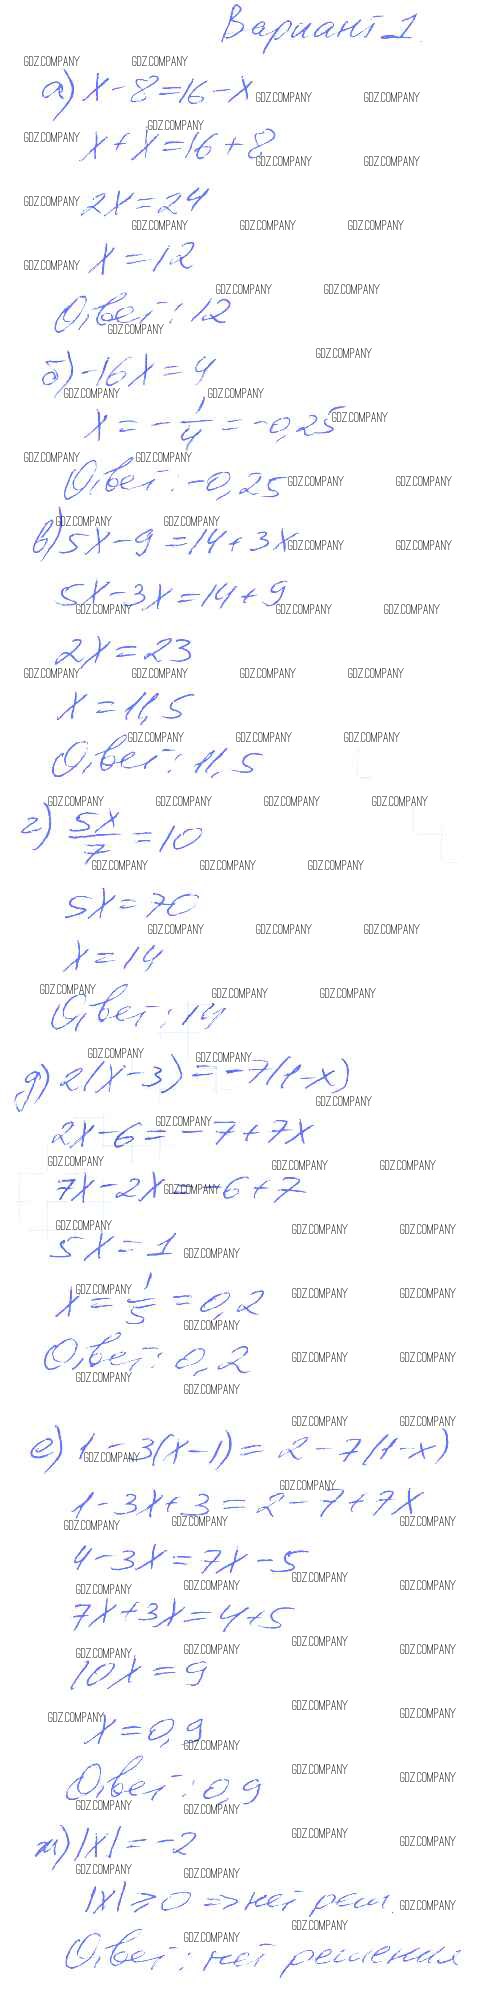 Вариант 1.
GDZ.COMPANY GDZ.COMPANY
а) x - 8 = 16 - x
GDZ.COMPANY GDZ.COMPANY
GDZ.COMPANY GDZ.COMPANY
x + x = 16 + 8
GDZ.COMPANY GDZ.COMPANY
GDZ.COMPANY
2x = 24
GDZ.COMPANY GDZ.COMPANY GDZ.COMPANY
GDZ.COMPANY
x = 12
GDZ.COMPANY GDZ.COMPANY
Ответ: 12
GDZ.COMPANY
GDZ.COMPANY
б) -16x = 4
GDZ.COMPANY GDZ.COMPANY
x = -1/4 = -0,25
GDZ.COMPANY
GDZ.COMPANY GDZ.COMPANY
Ответ: -0,25
GDZ.COMPANY GDZ.COMPANY
GDZ.COMPANY GDZ.COMPANY
в) 5x - 9 = 14 + 3x
GDZ.COMPANY GDZ.COMPANY
5x - 3x = 14 + 9
GDZ.COMPANY GDZ.COMPANY GDZ.COMPANY
2x = 23
GDZ.COMPANY GDZ.COMPANY GDZ.COMPANY GDZ.COMPANY
x = 11,5
GDZ.COMPANY GDZ.COMPANY GDZ.COMPANY
Ответ: 11,5
GDZ.COMPANY GDZ.COMPANY GDZ.COMPANY GDZ.COMPANY
г) 5x/7 = 10
GDZ.COMPANY GDZ.COMPANY GDZ.COMPANY
5x = 70
GDZ.COMPANY GDZ.COMPANY GDZ.COMPANY
x = 14
GDZ.COMPANY GDZ.COMPANY GDZ.COMPANY
Ответ: 14
GDZ.COMPANY GDZ.COMPANY
д) 2(x - 3) = -7(1 - x)
GDZ.COMPANY
GDZ.COMPANY
2x - 6 = -7 + 7x
GDZ.COMPANY GDZ.COMPANY GDZ.COMPANY
7x - 2x = -6 + 7
GDZ.COMPANY
GDZ.COMPANY GDZ.COMPANY GDZ.COMPANY
5x = 1
GDZ.COMPANY
GDZ.COMPANY GDZ.COMPANY GDZ.COMPANY
x = 1/5 = 0,2
GDZ.COMPANY
Ответ: 0,2
GDZ.COMPANY GDZ.COMPANY
GDZ.COMPANY
GDZ.COMPANY
GDZ.COMPANY GDZ.COMPANY
е) 1 - 3(x - 1) = 2 - 7(1 - x)
GDZ.COMPANY
GDZ.COMPANY
1 - 3x + 3 = 2 - 7 + 7x
GDZ.COMPANY GDZ.COMPANY GDZ.COMPANY
4 - 3x = 7x - 5
GDZ.COMPANY GDZ.COMPANY GDZ.COMPANY GDZ.COMPANY
7x + 3x = 4 + 5
GDZ.COMPANY GDZ.COMPANY GDZ.COMPANY GDZ.COMPANY
10x = 9
GDZ.COMPANY GDZ.COMPANY GDZ.COMPANY
x = 0,9
GDZ.COMPANY
GDZ.COMPANY GDZ.COMPANY
Ответ: 0,9
GDZ.COMPANY GDZ.COMPANY
GDZ.COMPANY GDZ.COMPANY
ж) |x| = -2
GDZ.COMPANY GDZ.COMPANY
|x| ⩾ 0 => нет реш.
GDZ.COMPANY
GDZ.COMPANY
GDZ.COMPANY
Ответ: нет решения